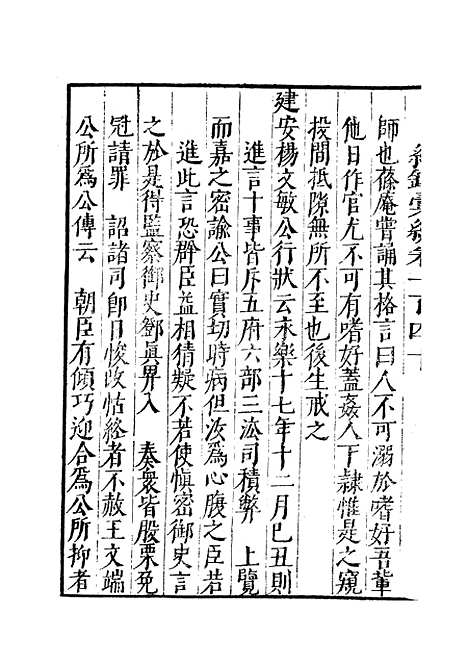 紀錄彙編卷一百四十
師也蓧庵嘗誦其格言曰人不可溺於嗜好吾輩
他日作官尤不可有嗜好蓋姦人下隷惟是之窺
投間抵隙無所不至也後生戒之
建安楊文敏公行狀云永樂十七年十二月巳丑則
進言十事皆斥五府六部三法司積弊　上覽
而嘉之密諭公曰實切時病但汝爲心腹之臣若
進此言恐群臣益相猜疑不若使愼密御史言
之於是得監察御史鄧眞畀入　奏衆皆股栗免
冠請罪　詔諸司卽日悛改怙終者不赦王文端
公所爲公傳云　朝臣有傾巧迎合爲公所抑者